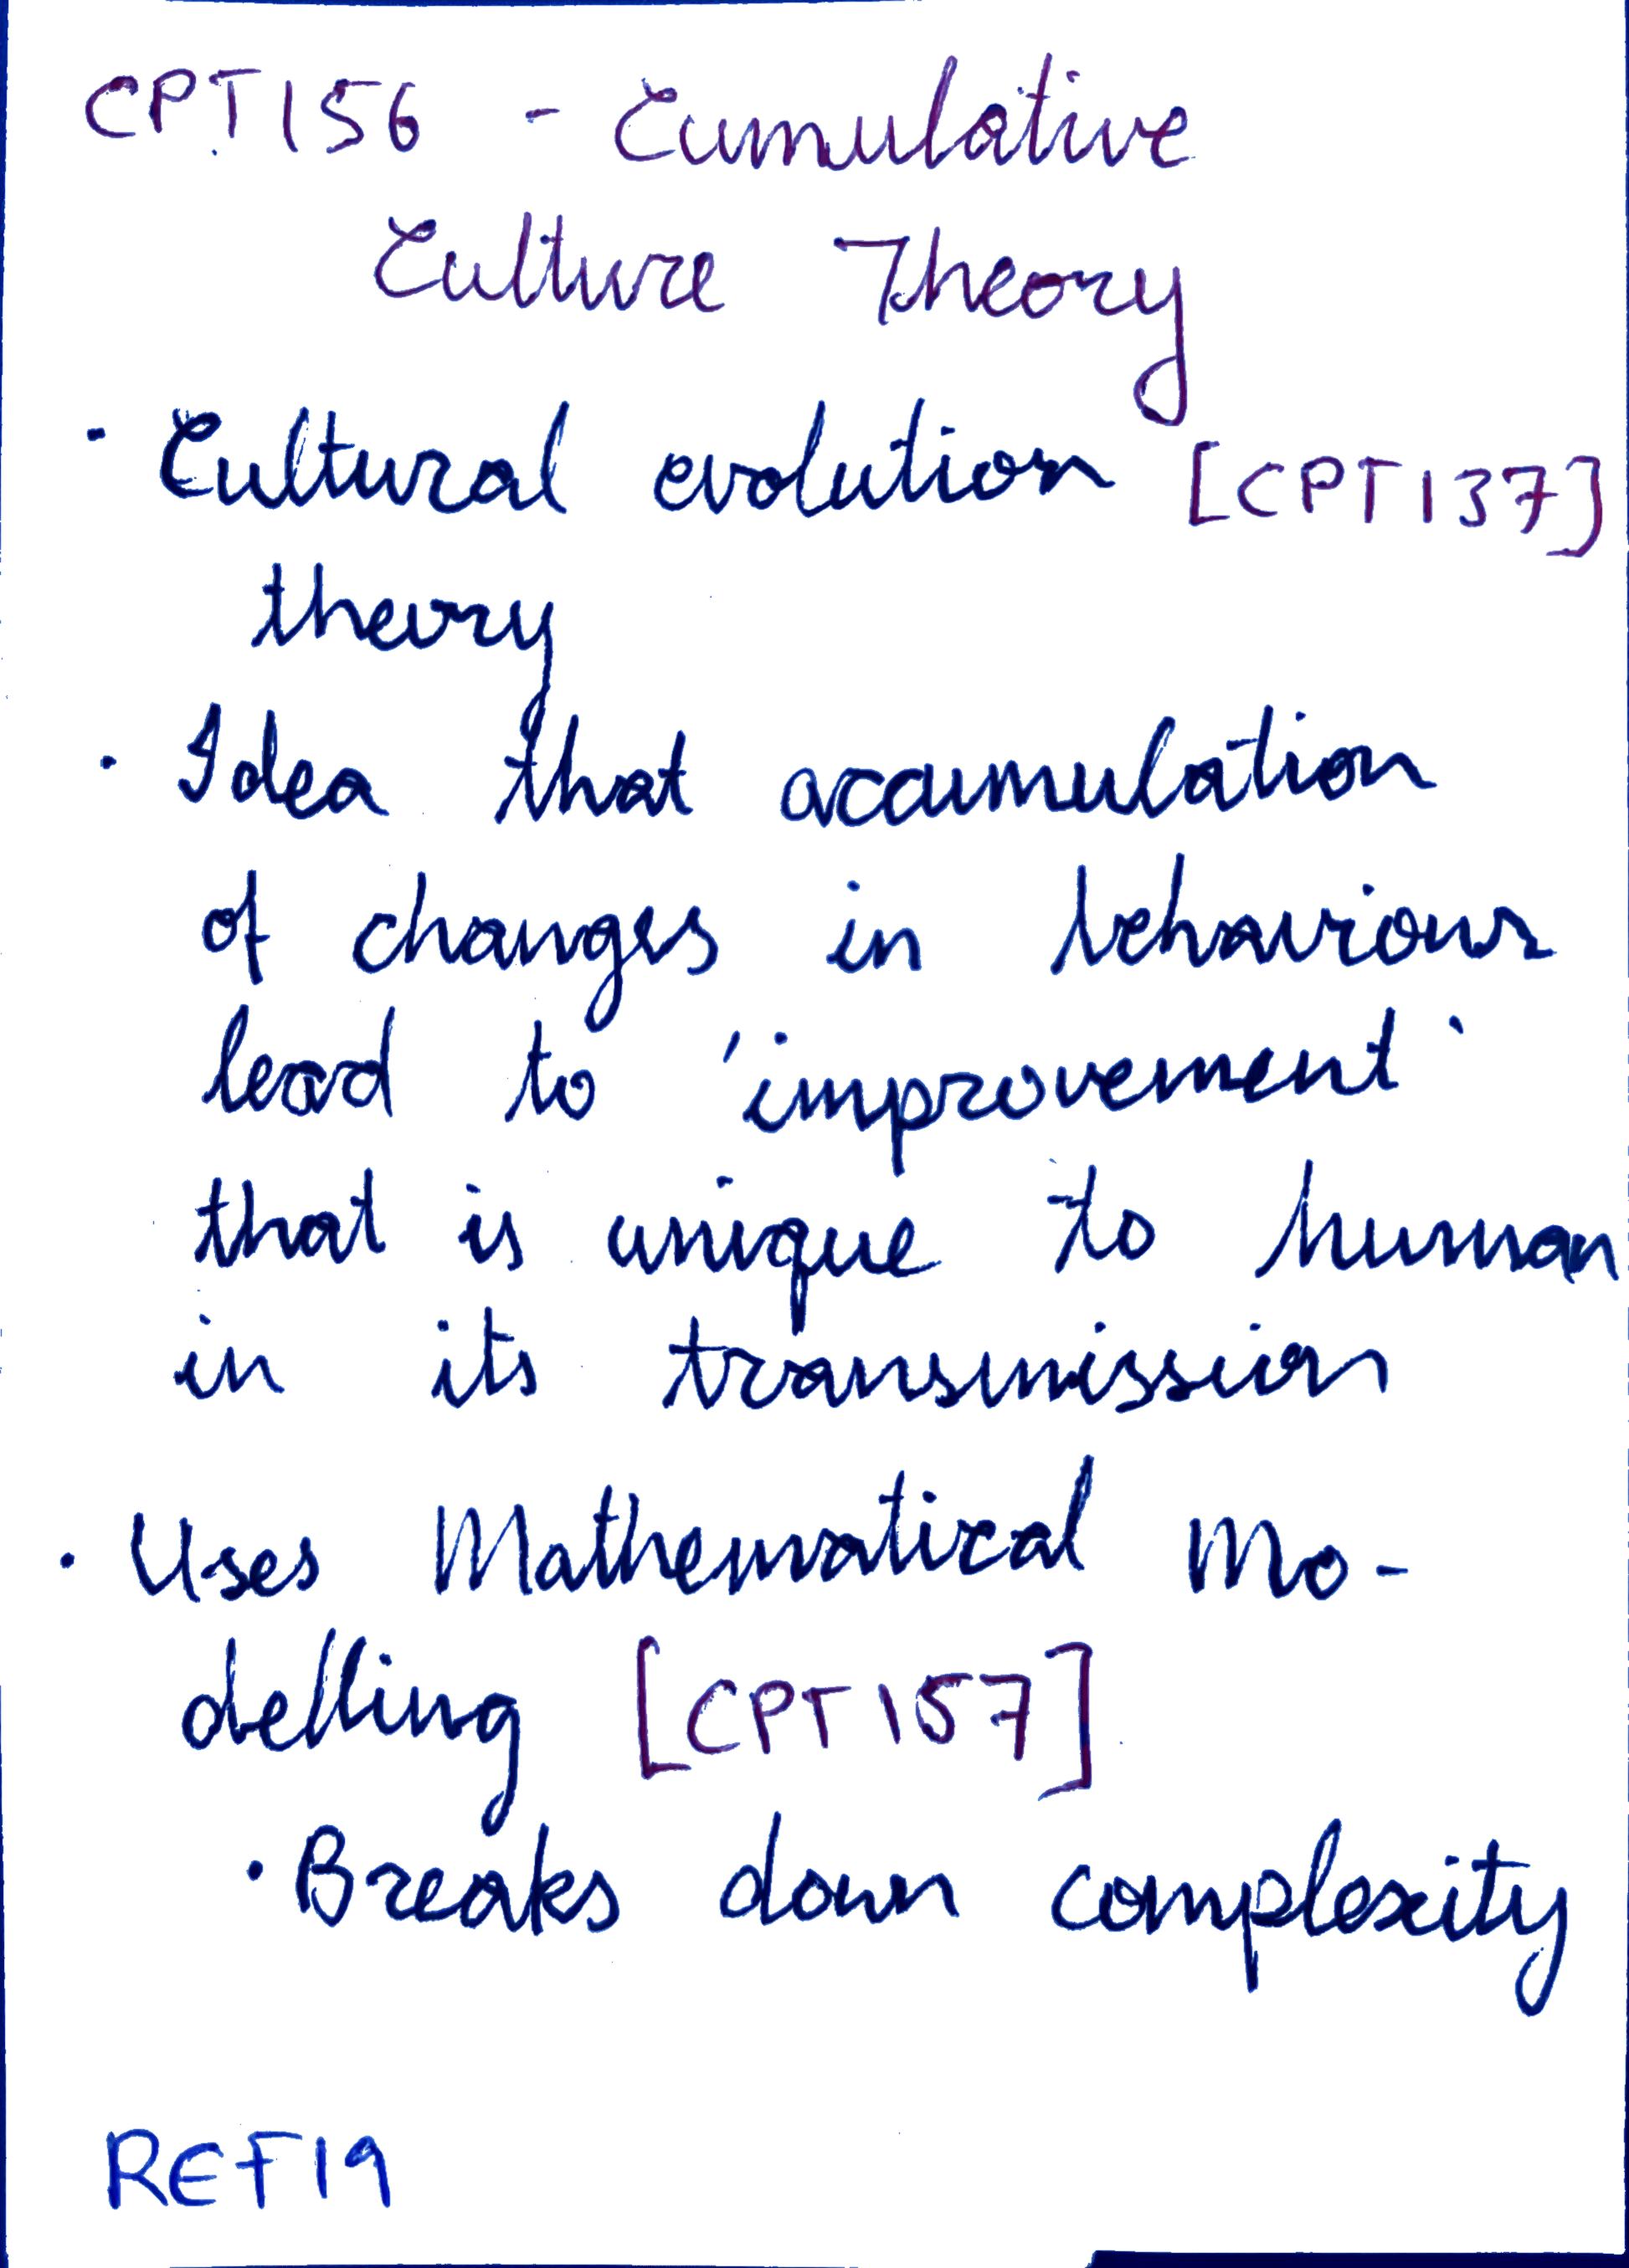 CPT156 - Cumulative
Culture Theory
· Cultural evolution [CPT137]
theory
· Idea that accumulation
of changes in behaviour
lead to 'improvement'
that is unique to human
in its transmission
· Uses Mathematical Mo-
delling [CPT157]
· Breaks down complexity
REF19